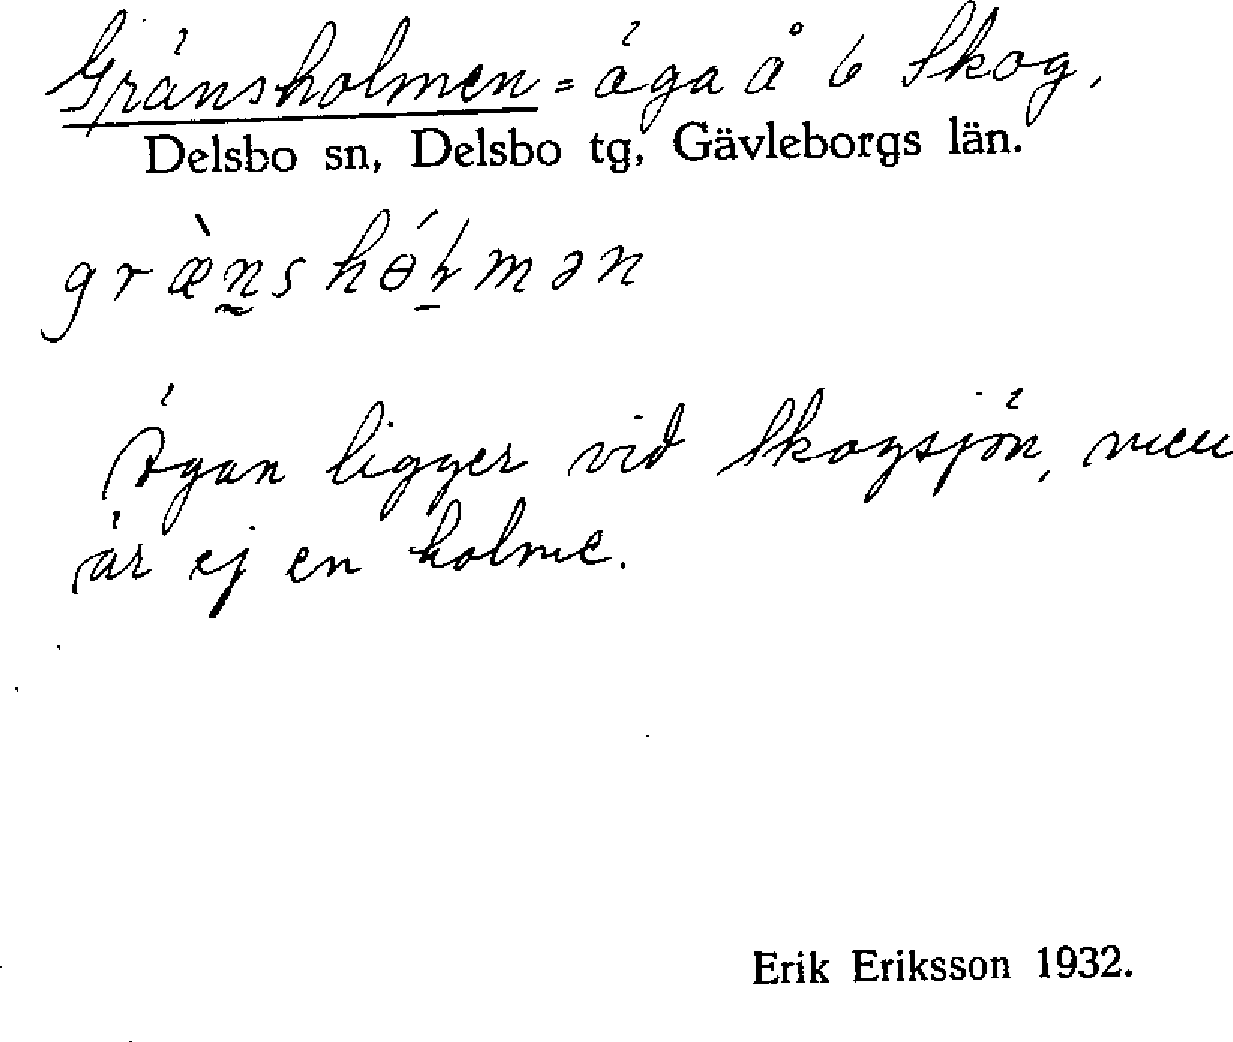 Gränsholmen = äga å 6 Skog,
Delsbo sn, Delsbo tg, Gävleborgs län.
græ̀n̰shɵ́ḻmən
Ägan ligger vid Skogsjön, men
är ej en holme.
Erik Eriksson 1932.